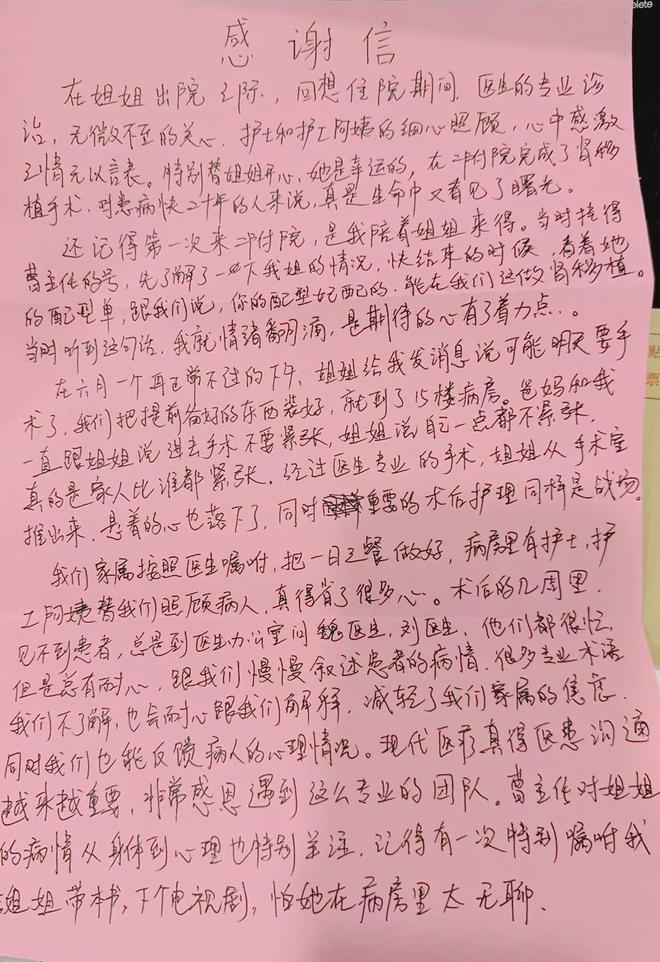 elete
感谢信
在姐姐出院之际，回想住院期间，医生的专业诊
治，无微不至的关心，护士和护工阿姨的细心照顾，心中感激
之情无以言表。特别替姐姐开心，她是幸运的，在二附院完成了肾移
植手术，对患病快二十年的人来说，真是生命中又看见了曙光。
还记得第一次来二附院，是我陪着姐姐来得。当时挂得
曹主任的号，先了解了一下我姐的情况，快结束的时候，看着她
的配型单，跟我们说，你的配型好配的，能在我们这做肾移植。
当时听到这句话，我就情绪翻涌，是期待的心有了着力点。
在六月一个再正常不过的下午，姐姐给我发消息说可能明天要手
术了，我们把提前备好的东西装好，就到了15楼病房。爸妈和我
一直跟姐姐说进去手术不要紧张，姐姐说自己一点都不紧张，
真的是家人比谁都紧张。经过医生专业的手术，姐姐从手术室
推出来，悬着的心也落下了，同时重要的术后护理同样是战场。
我们家属按照医生嘱咐，把一日三餐做好，病房里有护士，护
工阿姨替我们照顾病人，真得省了很多心。术后的几周里，
见不到患者，总是到医生办公室问魏医生，刘医生，他们都很忙，
但是总有耐心，跟我们慢慢叙述患者的病情，很多专业术语
我们不了解，也会耐心跟我们解释，减轻了我们家属的焦虑，
同时我们也能反馈病人的心理情况。现代医疗真得医患沟通
越来越重要，非常感恩遇到这么专业的团队。曹主任对姐姐
的病情从身体到心理也特别关注，记得有一次特别嘱咐我
姐姐带本书，下个电视剧，怕她在病房里太无聊、
票